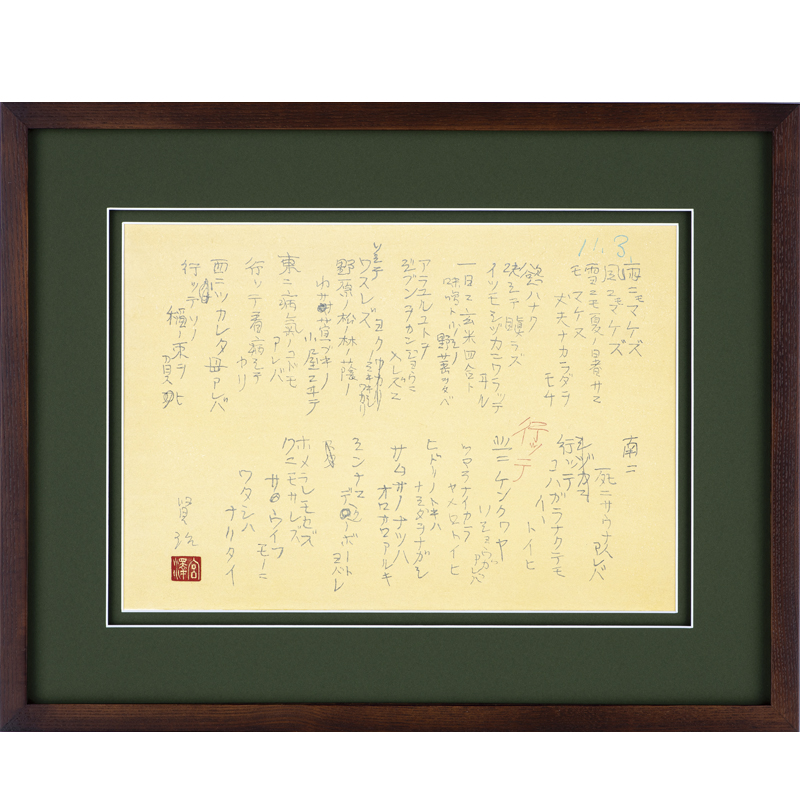 11.3
雨ニモマケズ
風ニモマケズ
雪ニモ夏ノ暑サニモ
マケヌ
丈夫ナカラダヲ
モチ
慾ハナク
決シテ瞋ラズ
イツモシヅカニワラッテ
ヰル
一日ニ玄米四合ト
味噌ト少シノ
野菜ヲタベ
アラユルコトヲ
ジブンヲカンジョウニ
入レズニ
ヨクミキキシワカリ
ソシテ
ワスレズ
野原ノ松ノ林ノ蔭ノ
小サナ萓ブキノ
小屋ニヰテ
東ニ病気ノコドモ
アレバ
行ッテ看病シテ
ヤリ
西ニツカレタ母アレバ
行ッテソノ
稲ノ束ヲ
負ヒ
南ニ
死ニサウナ人
アレバ
行ッテ
コハガラナクテモ
イヽト
イヒ
行ッテ
北ニケンクヮヤ
ソショウガ
アレバ
ツマラナイカラ
ヤメロトイヒ
ヒドリノトキハ
ナミダヲナガシ
サムサノナツハ
オロオロアルキ
ミンナニ
デクノボート
ヨバレ
ホメラレモセズ
クニモサレズ
サウイフ
モノニ
ワタシハ
ナリタイ
賢治
宮澤